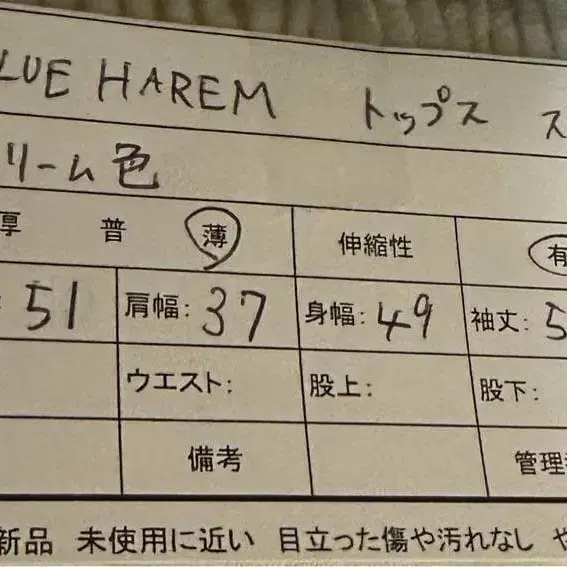 LUE HAREM トップス ス
リーム色
厚 普 薄 伸縮性 有
51 肩幅: 37 身幅: 49 袖丈: 5
ウエスト: 股上: 股下:
備考 管理
新品 未使用に近い 目立った傷や汚れなし や